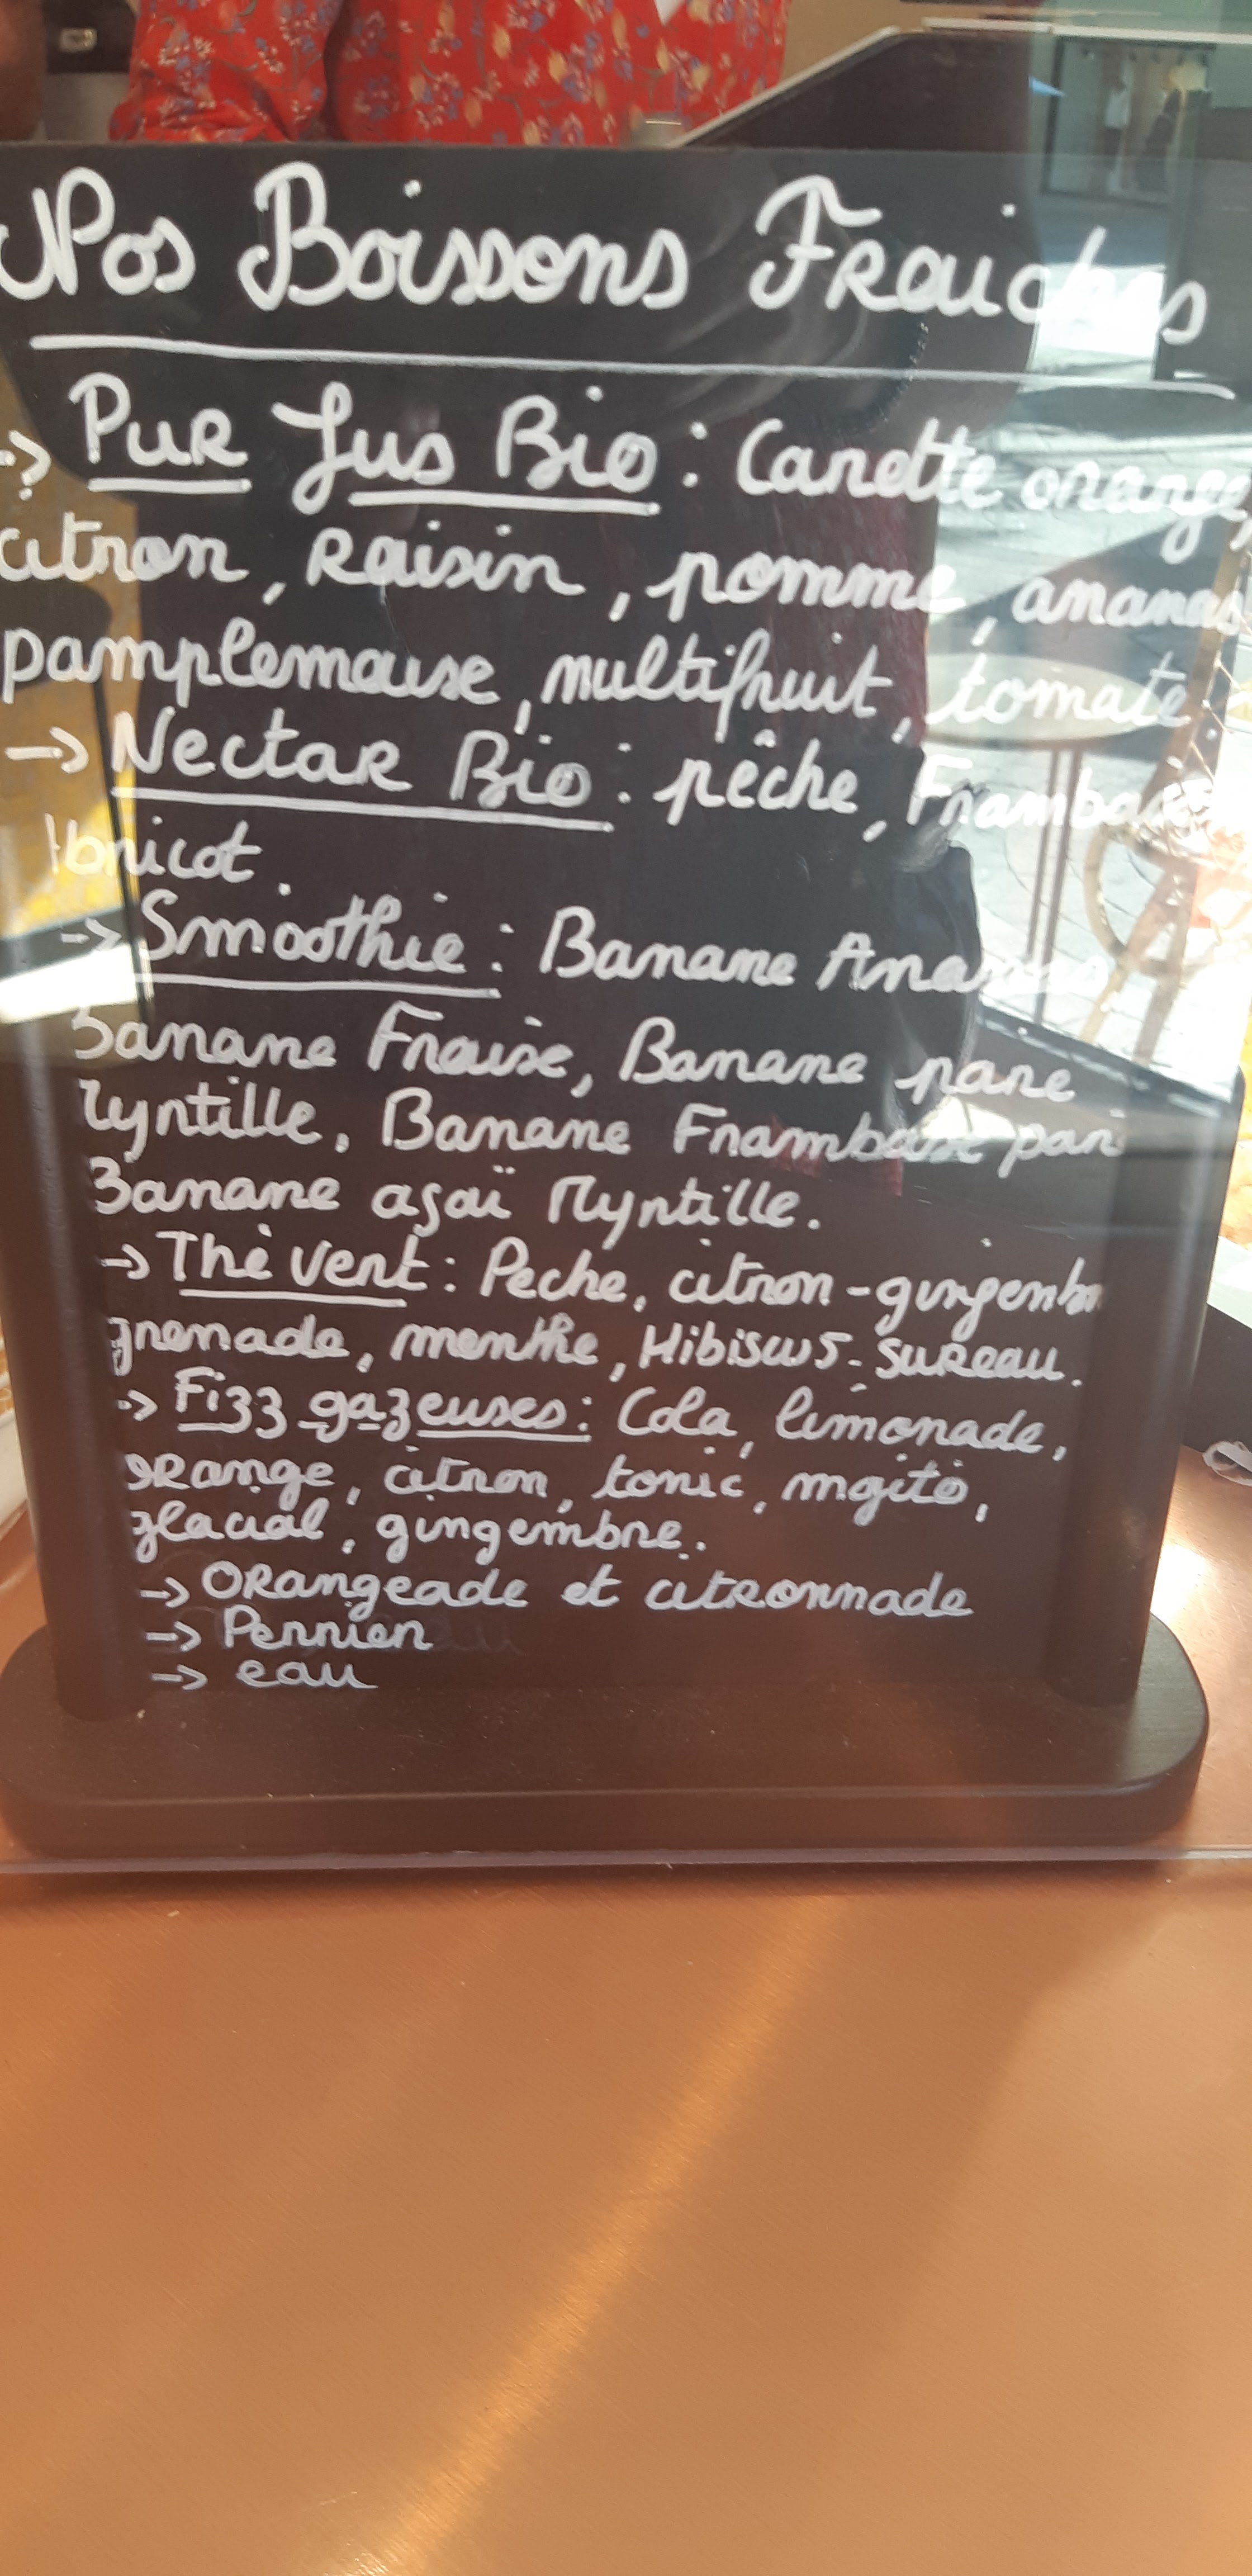 Nos Boissons Fraiches
-> Pur Jus Bio : Canette orange,
citron, Raisin, pomme, ananas
pamplemouse, multifruit, tomate.
-> Nectar Bio : pêche, Framboise
Abricot.
-> Smoothie : Banane Ananas,
Banane Fraise, Banane poire
Myrtille, Banane Framboise poire
Banane açaï Myrtille.
-> Thé vert : Peche, citron-gingembre
grenade, menthe, Hibiscus-sureau.
-> Fizz gazeuses : Cola, limonade,
orange, citron, tonic, mojito,
glacial, gingembre.
-> Orangeade et citronnade
-> Perrier
-> eau